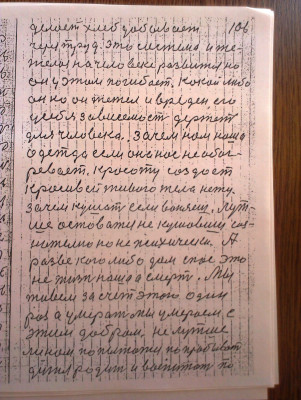 делает хлеб добывает 106
чем труд. это система и те-
жела на человеке развита но
он у этом погибает. Какой либо
он ко он тежел и вреден его
учеба зависемост держет
для человека. Зачем нам наша
одежда если она нас не обог-
ревает. красоту создает
красивей живого тела нету.
Зачем кушат если воняеш. Лут-
ше оставатся не кушавшы соз-
нателно но не психически. А
разве кого либо дом спас это
не жизн наша а смерт. Мы
живем за счет этого один
раз а умерат мы умераем с
этим добрам. не лутше
ли нам попытатся попробыват
дитя родит и воспитат по